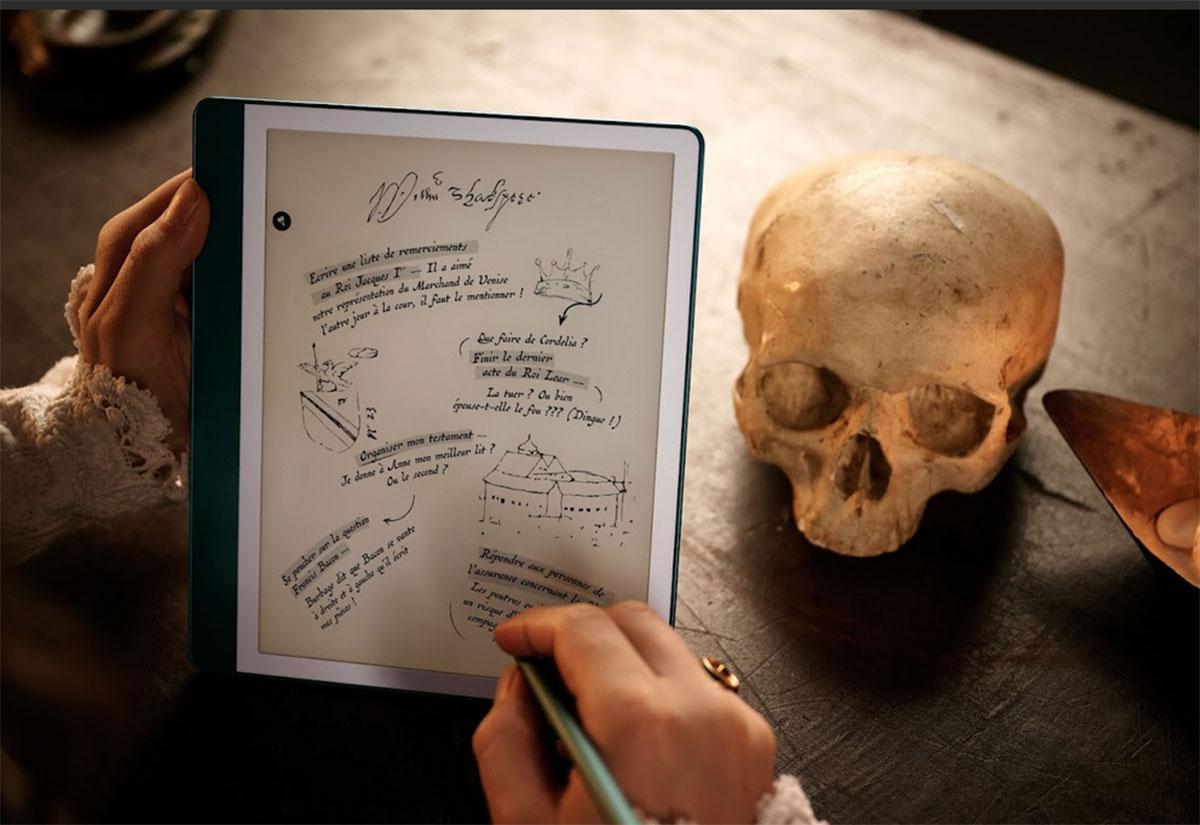 Willm Shakspere
Ecrire une liste de remerciements
au Roi Jacques Iᵉʳ — Il a aimé
notre représentation du Marchand de Venise
l'autre jour à la cour, il faut le mentionner !
Que faire de Cordelia ?
Finir le dernier
acte du Roi Lear —
La tuer ? Ou bien
épouse-t-elle le fou ??? (Dingue !)
Organiser mon testament —
Je donne à Anne mon meilleur lit ?
Ou le second ?
Se pencher sur la question
Francis Bacon —
Burbage dit que Bacon se vante
à droite et à gauche qu'il écrit
mes pièces !
Répondre aux personnes de
l'assurance concernant
Les poutres
un risque